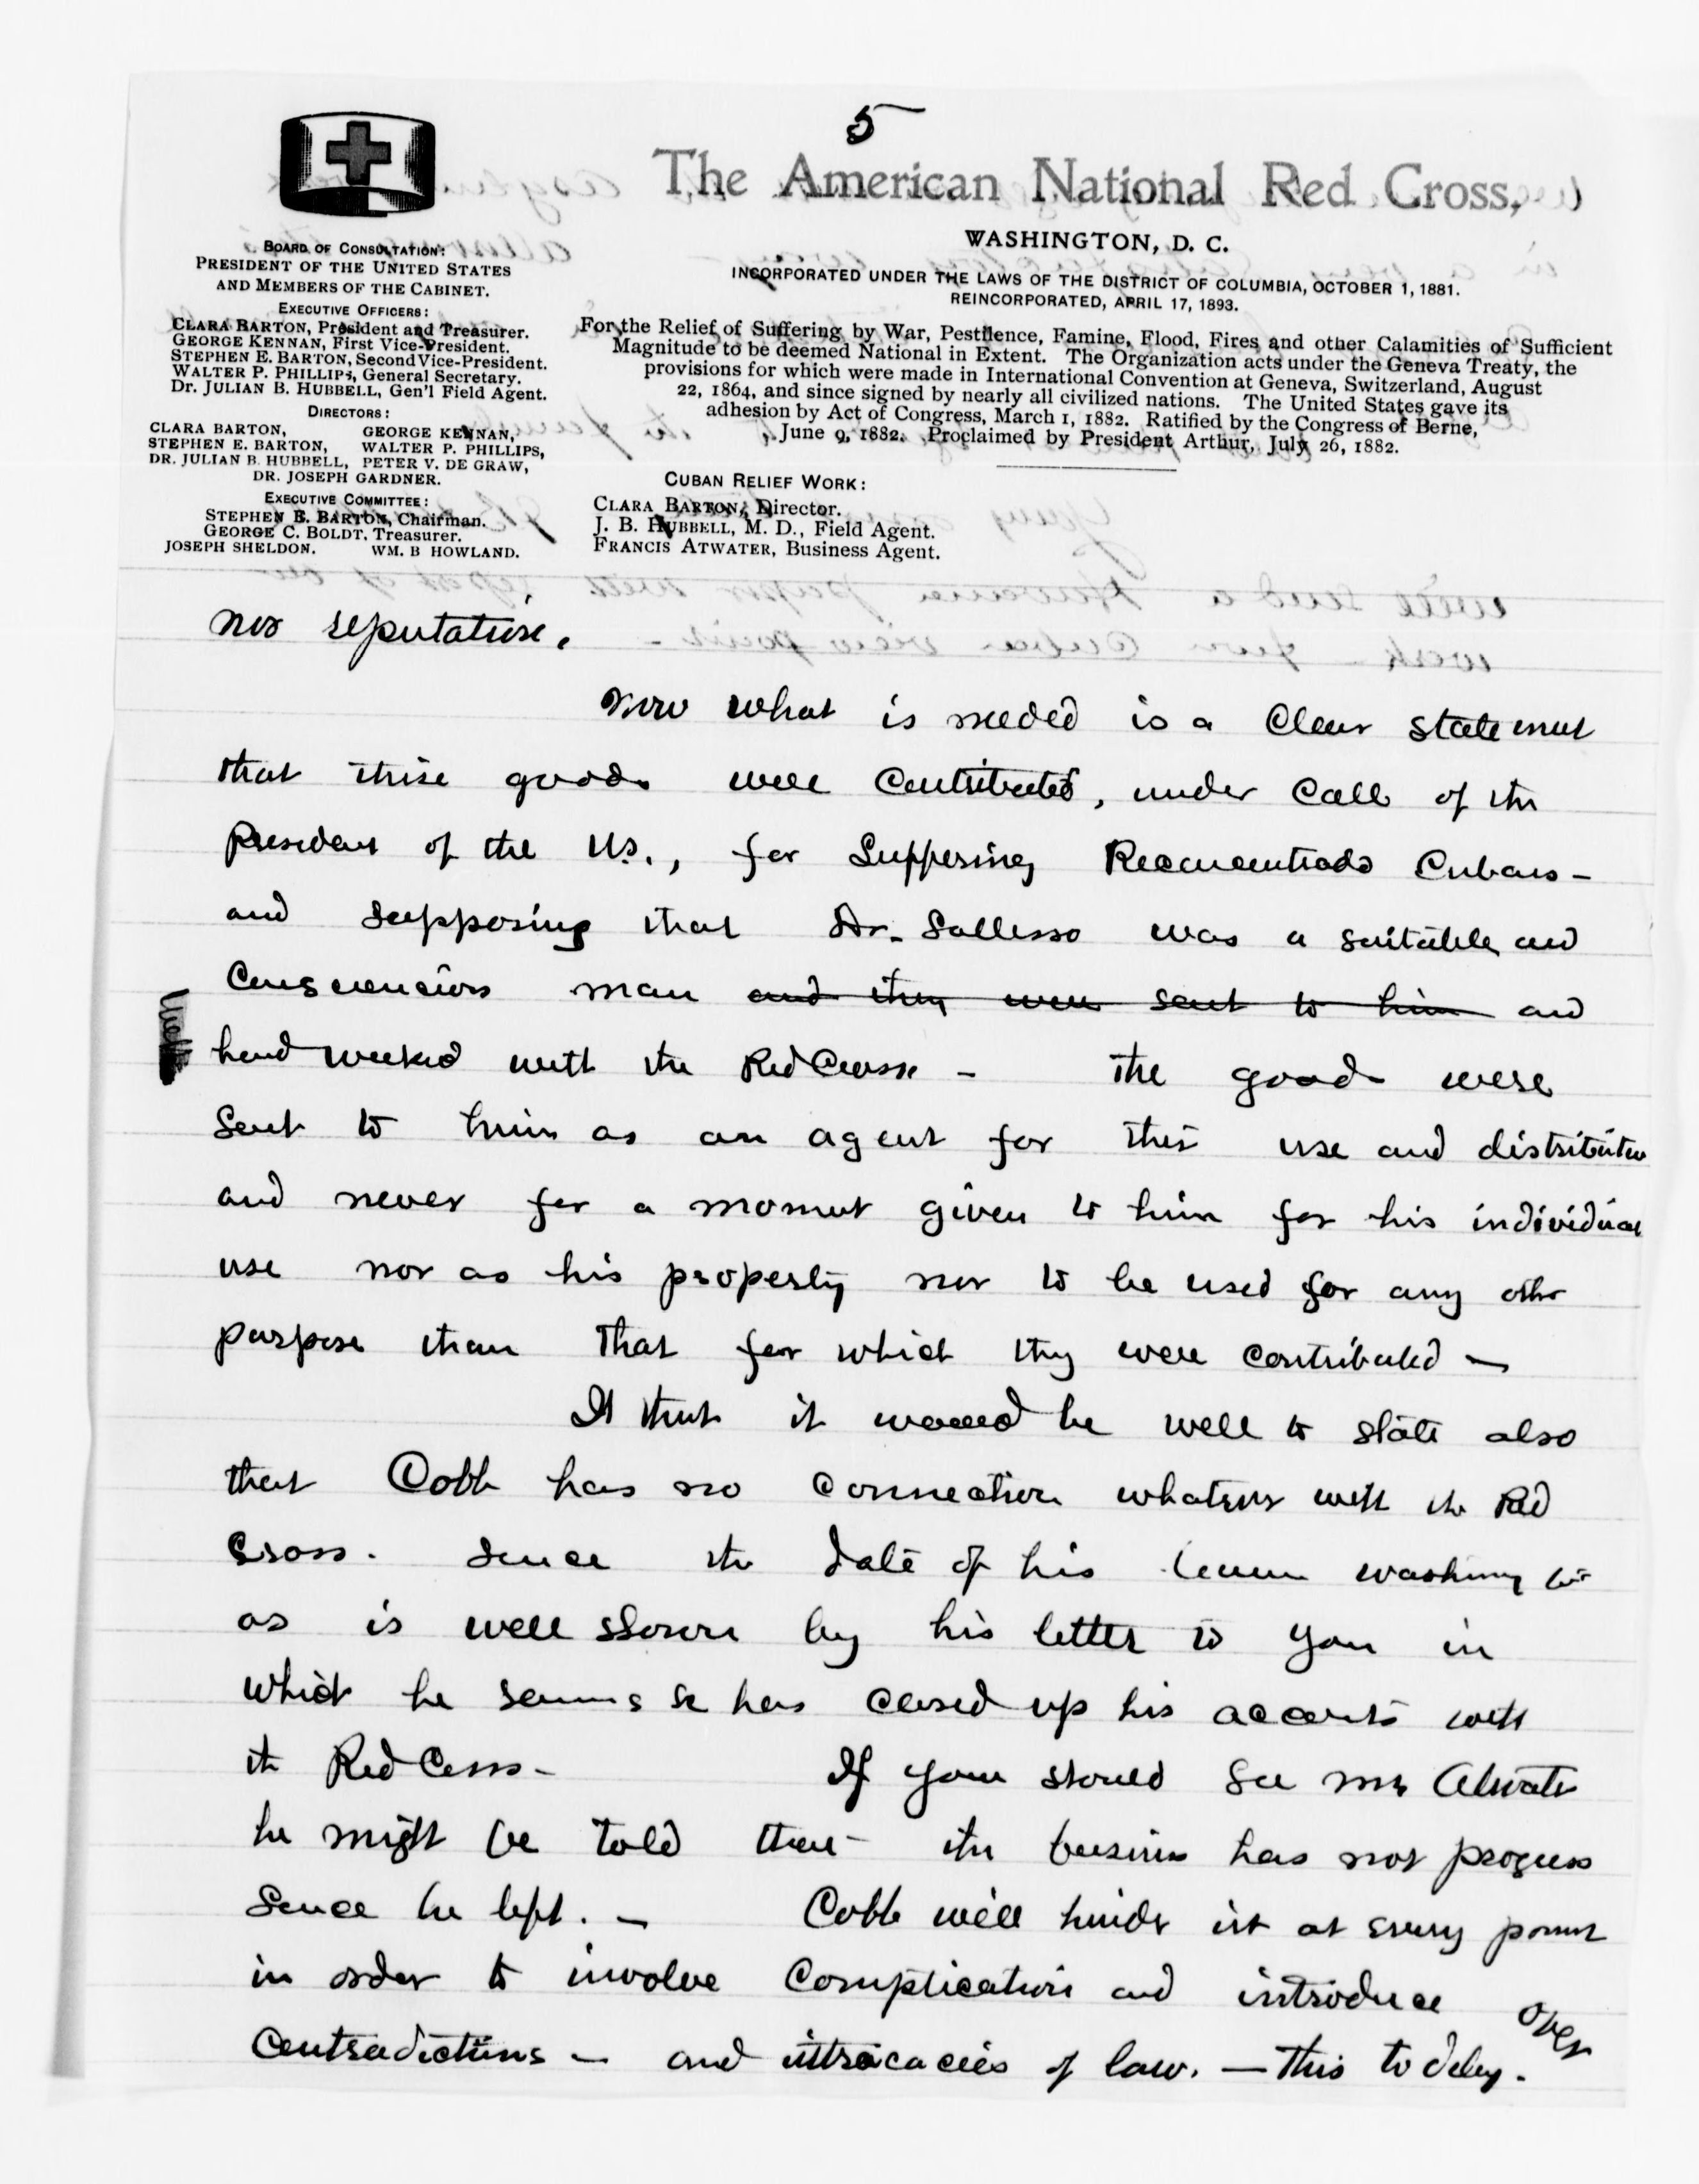 5
The American National Red Cross,
WASHINGTON, D. C.
INCORPORATED UNDER THE LAWS OF THE DISTRICT OF COLUMBIA, OCTOBER 1, 1881.
REINCORPORATED, APRIL 17, 1893.
For the Relief of Suffering by War, Pestilence, Famine, Flood, Fires and other Calamities of Sufficient
Magnitude to be deemed National in Extent. The Organization acts under the Geneva Treaty, the
provisions for which were made in International Convention at Geneva, Switzerland, August
22, 1864, and since signed by nearly all civilized nations. The United States gave its
adhesion by Act of Congress, March 1, 1882. Ratified by the Congress of Berne,
June 9, 1882. Proclaimed by President Arthur, July 26, 1882.
BOARD OF CONSULTATION:
PRESIDENT OF THE UNITED STATES
AND MEMBERS OF THE CABINET.
EXECUTIVE OFFICERS:
CLARA BARTON, President and Treasurer.
GEORGE KENNAN, First Vice-President.
STEPHEN E. BARTON, Second Vice-President.
WALTER P. PHILLIPS, General Secretary.
Dr. JULIAN B. HUBBELL, Gen'l Field Agent.
DIRECTORS:
CLARA BARTON, GEORGE KENNAN,
STEPHEN E. BARTON, WALTER P. PHILLIPS,
DR. JULIAN B. HUBBELL, PETER V. DE GRAW,
DR. JOSEPH GARDNER.
EXECUTIVE COMMITTEE:
STEPHEN E. BARTON, Chairman.
GEORGE C. BOLDT, Treasurer.
JOSEPH SHELDON. WM. B HOWLAND.
CUBAN RELIEF WORK:
CLARA BARTON, Director.
J. B. HUBBELL, M. D., Field Agent.
FRANCIS ATWATER, Business Agent.
nor reputation.
Now what is needed is a clear statement
that these goods were contributed, under call of the
President of the U.S., for suffering Reconcentrado Cubans -
and supposing that Dr. Sollosso was a suitable and
conscientious man and they were sent to him and
had worked with the Red Cross - The goods were
sent to him as an agent for this use and distribution
and never for a moment given to him for his individual
use nor as his property nor to be used for any other
purpose than that for which they were contributed -
I think it would be well to state also
that Cobb has no connection whatever with the Red
Cross. since the date of his leaving Washington
as is well shown by his letter to you in
which he has closed up his accounts with
the Red Cross - If you should see Mr Atwater
he might be told that the business has not progress
since he left. - Cobb will hinder it at every point
in order to involve complication and introduce
contradictions - and intricacies of law. - This to delay.
over